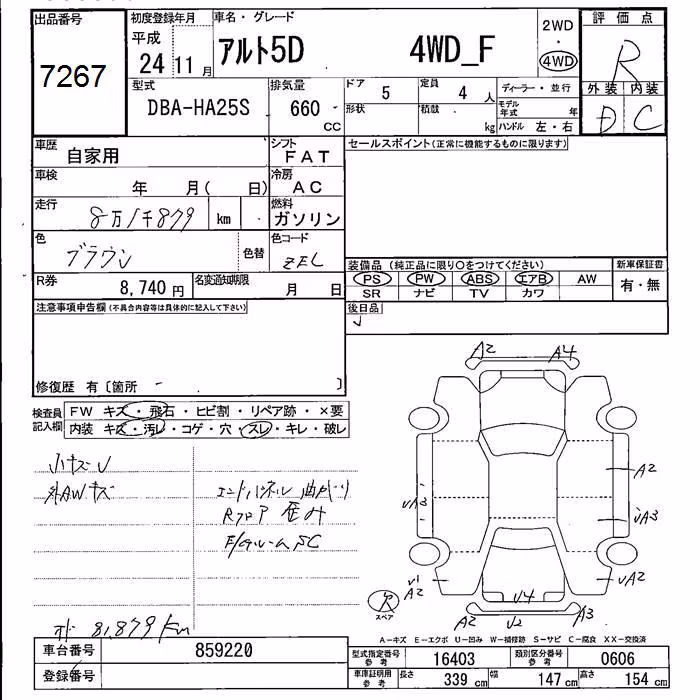 出品番号
7267
初度登録年月
平成
24 11 月
車名・グレード
アルト5D 4WD_F
2WD
・
4WD
評価点
R
外装 内装
D C
型式
DBA-HA25S
排気量
660
CC
ドア
5
定員
4 人
ディーラー・並行
形状
積載
kg
モデル年式 年
ハンドル 左・右
車歴
自家用
シフト
FAT
車検
年 月( 日)
冷房
AC
走行
8万1千879 km
燃料
ガソリン
色
ブラウン
色替
色コード
ZEL
R券
8,740 円
名変通知期限
月 日
セールスポイント(正常に機能するものに限ります)
装備品 (純正品に限り○をつけてください)
新車保証書
PS PW ABS エアB AW
有・無
SR ナビ TV カワ
後日品
注意事項申告欄(不具合内容等は具体的に記入して下さい)
修復歴 有〔箇所 〕
検査員記入欄
FW キズ・飛石・ヒビ割・リペア跡・×要
内装 キズ・汚レ・コゲ・穴・スレ・キレ・破レ
小キズU
外AWキズ
エンドパネル 曲がり
Rフロア 歪み
F/クルームSC
A2 A4
A2
UA3
UA3
U1
A2
UA2
U4
A2 U2 A3
R
スペア
オド 81,879Km
A-キズ E-エクボ U-凹み W-補修跡 S-サビ C-腐食 XX-交換済
車台番号
859220
登録番号
型式指定番号
参考
16403
類別区分番号
参考
0606
車庫証明用
参考
長さ 339 cm 幅 147 cm 高さ 154 cm